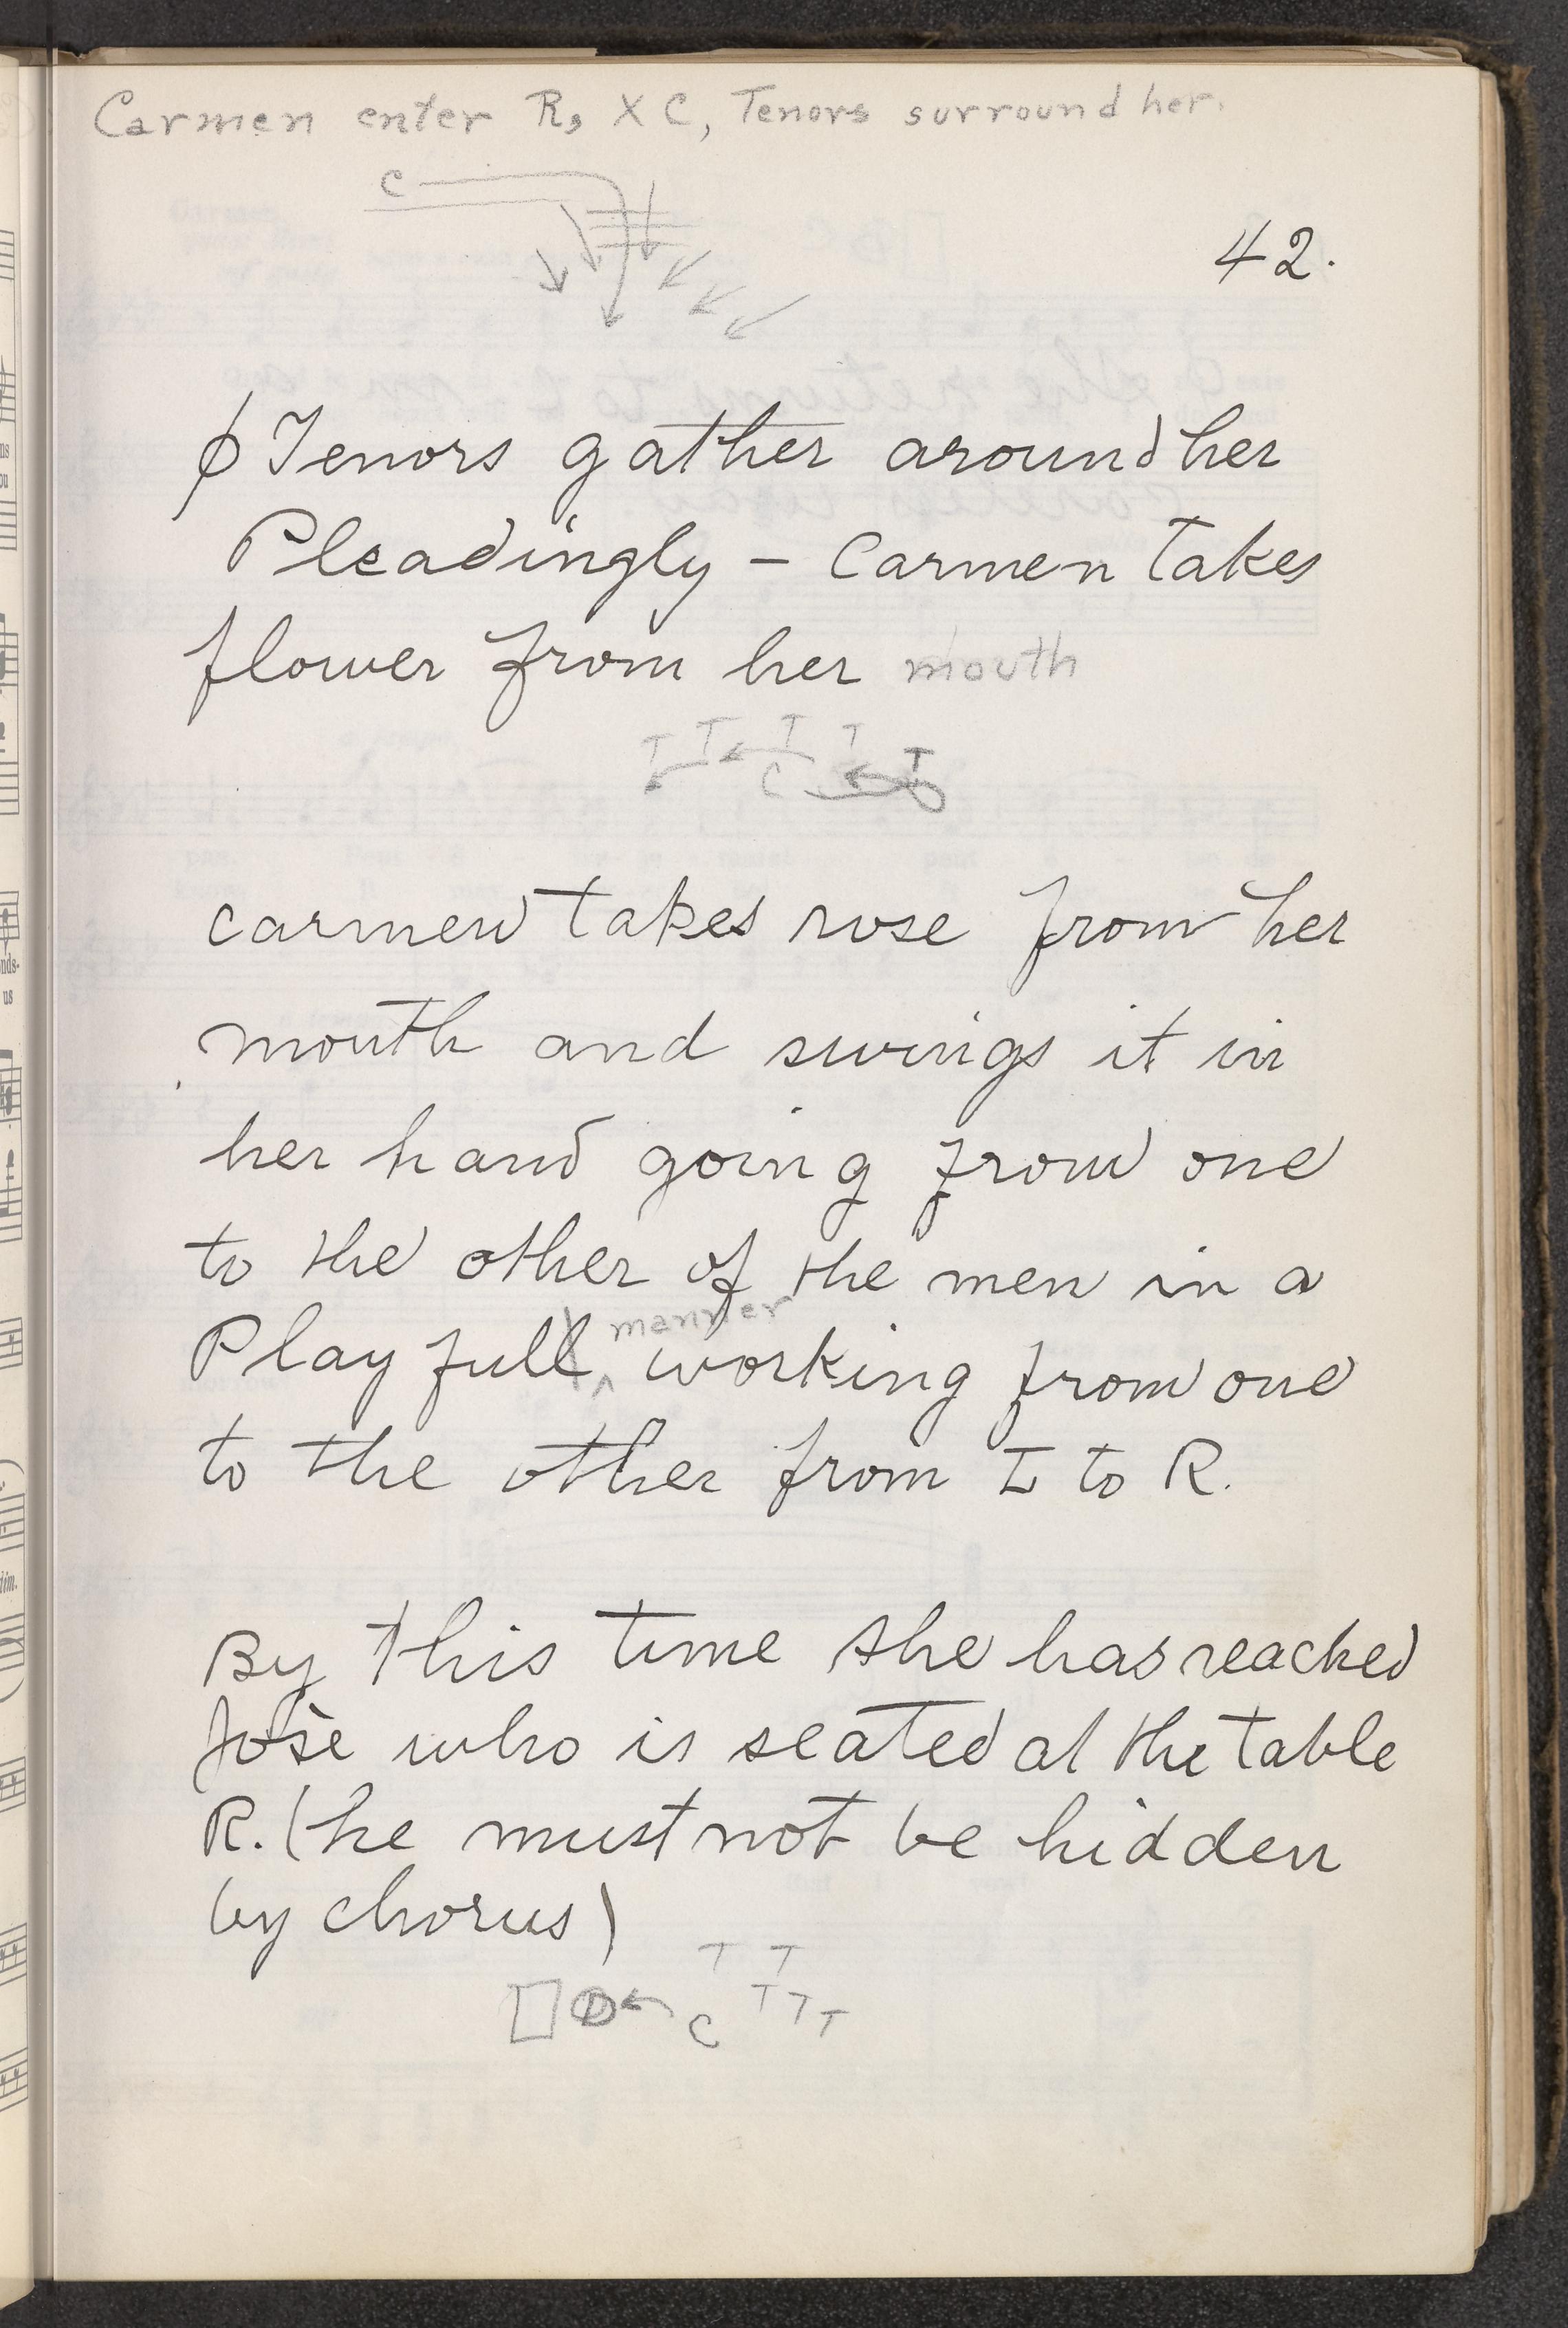 Carmen enter R, X C, Tenors surround her.
C
42.
φ Tenors gather around her
Pleadingly – Carmen takes
flower from her mouth
T T T T T
C
carmen takes rose from her
mouth and swings it in
her hand going from one
to the other of the men in a
Playfull manner working from one
to the other from L to R.
By this time she has reached
José who is seated at the table
R. (he must not be hidden
by chorus)
T T
C T T T